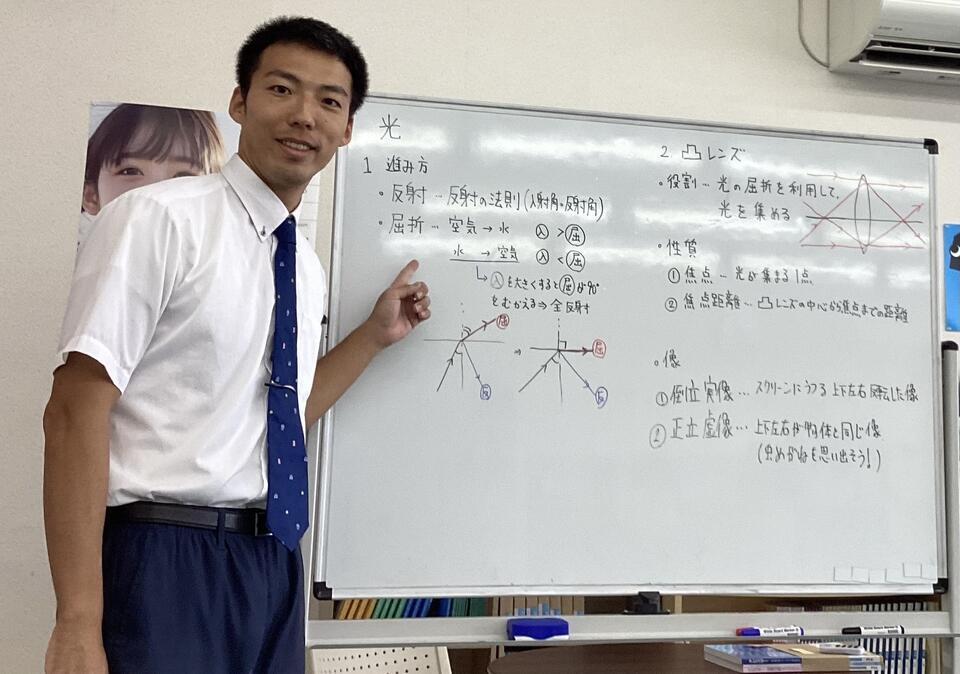 光
1 進み方
・反射 … 反射の法則(入射角=反射角)
・屈折 … 空気 → 水 入 > 屈
水 → 空気 入 < 屈
↳ 入を大きくすると屈が90°
をむかえる⇒全反射
屈
反
⇒
屈
反
2. 凸レンズ
・役割 … 光の屈折を利用して、
光を集める
・性質
① 焦点 … 光が集まる1点
② 焦点距離 … 凸レンズの中心から焦点までの距離
・像
① 倒立実像 … スクリーンにうつる上下左右反転した像
② 正立虚像 … 上下左右が物体と同じ像
(虫めがねを思い出そう!)